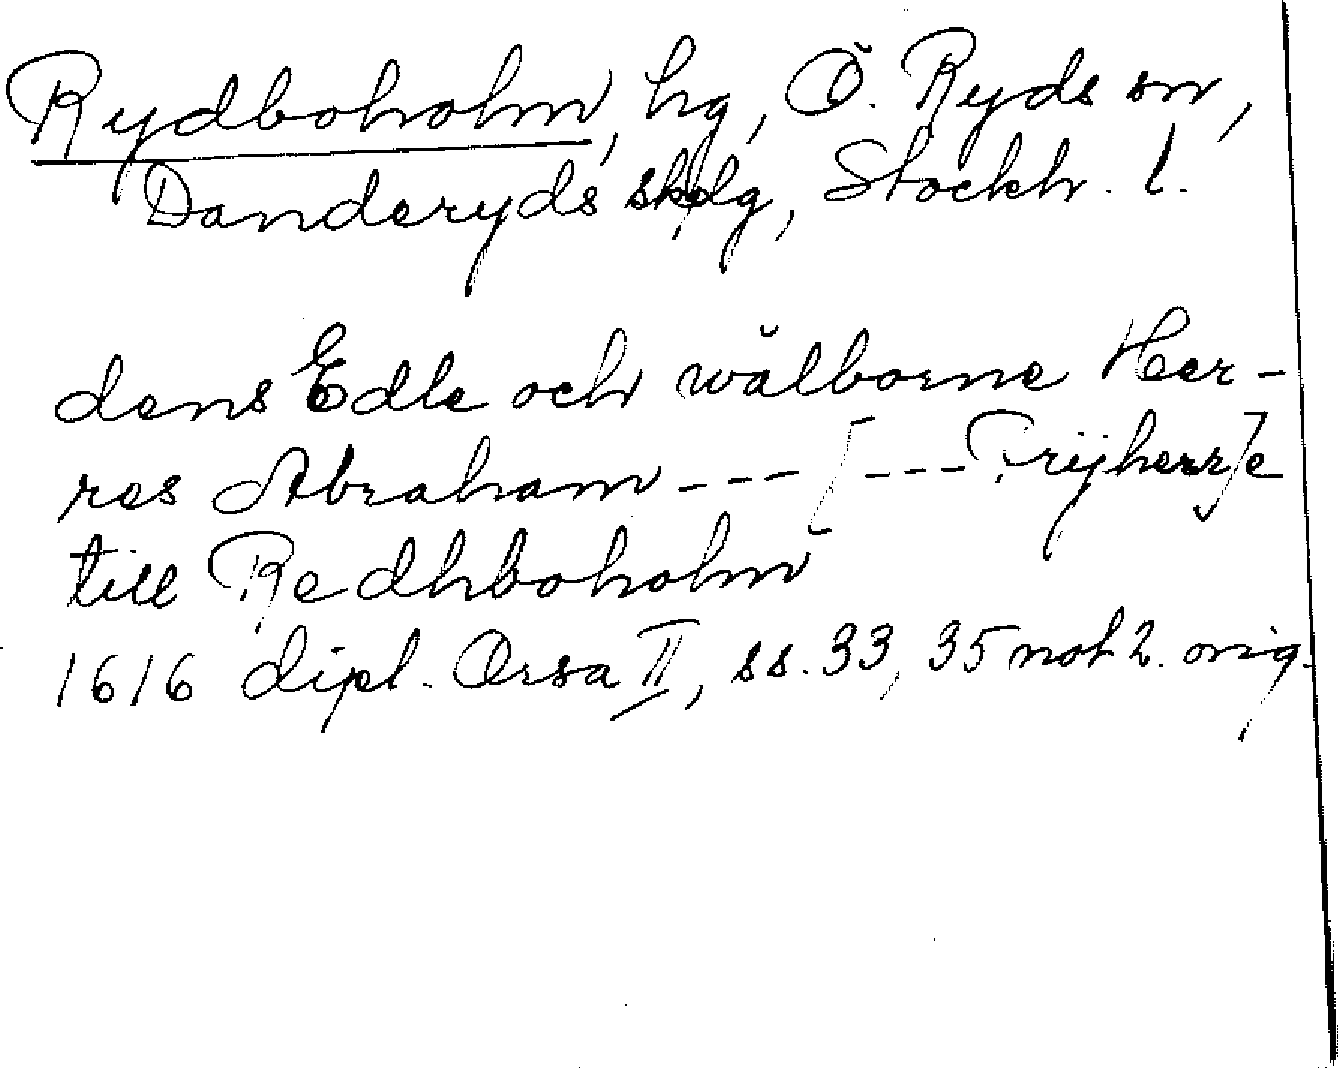 Rydboholm, hg, Ö. Ryds sn,
Danderyds skplg, Stockh. l.
dens Edle och wälborne Her-
res Abraham --- [--- Frijherr]e
till Redhboholm
1616 dipl. Orsa II, ss. 33, 35 not 2. orig.